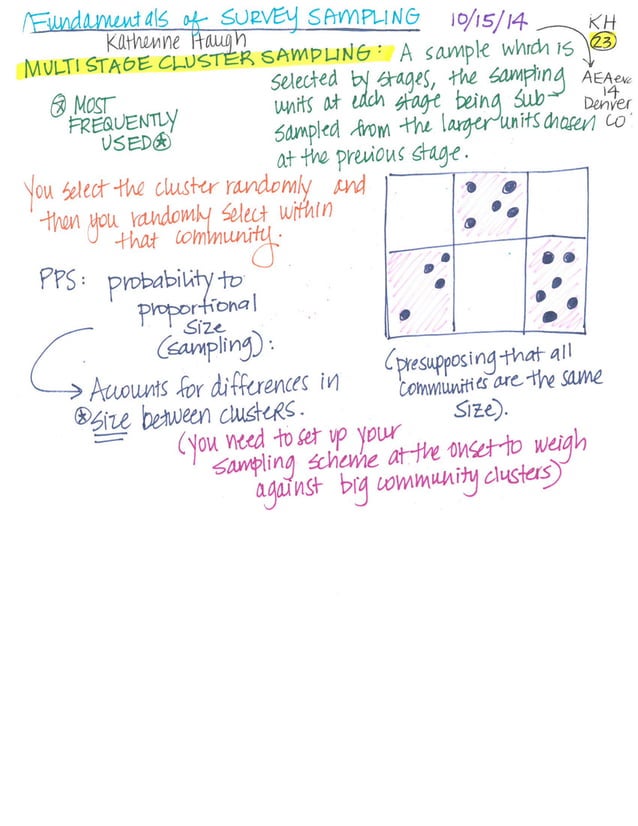 Fundamentals of SURVEY SAMPLING 10/15/14 KH
Katherine Haugh 23
MULTISTAGE CLUSTER SAMPLING: A sample which is
selected by stages, the sampling
units at each stage being sub-
sampled from the larger units chosen
at the previous stage.
AEA eval
14
Denver
CO
MOST
FREQUENTLY
USED
You select the cluster randomly and
then you randomly select within
that community.
PPS: probability to
proportional
size
(sampling):
Accounts for differences in
size between clusters.
(presupposing that all
communities are the same
size).
(you need to set up your
sampling scheme at the onset to weigh
against big community clusters)